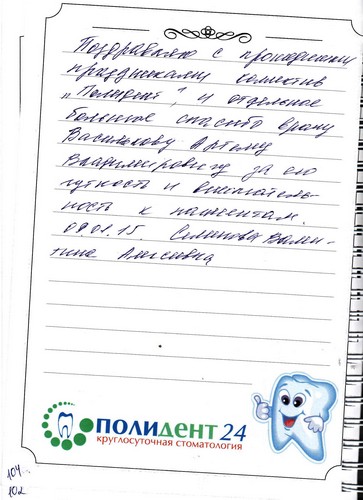 Поздравляю с прошедшими
праздниками коллектив
„Полидент", и отдельное
большое спасибо врачу
Василькову Артему
Владимировичу за его
чуткость и внематель-
ность к пациентам.
09.01.15. Семенова Вален-
тина Алексеевна
ПОЛИДЕНТ 24
круглосуточная стоматология
104
102